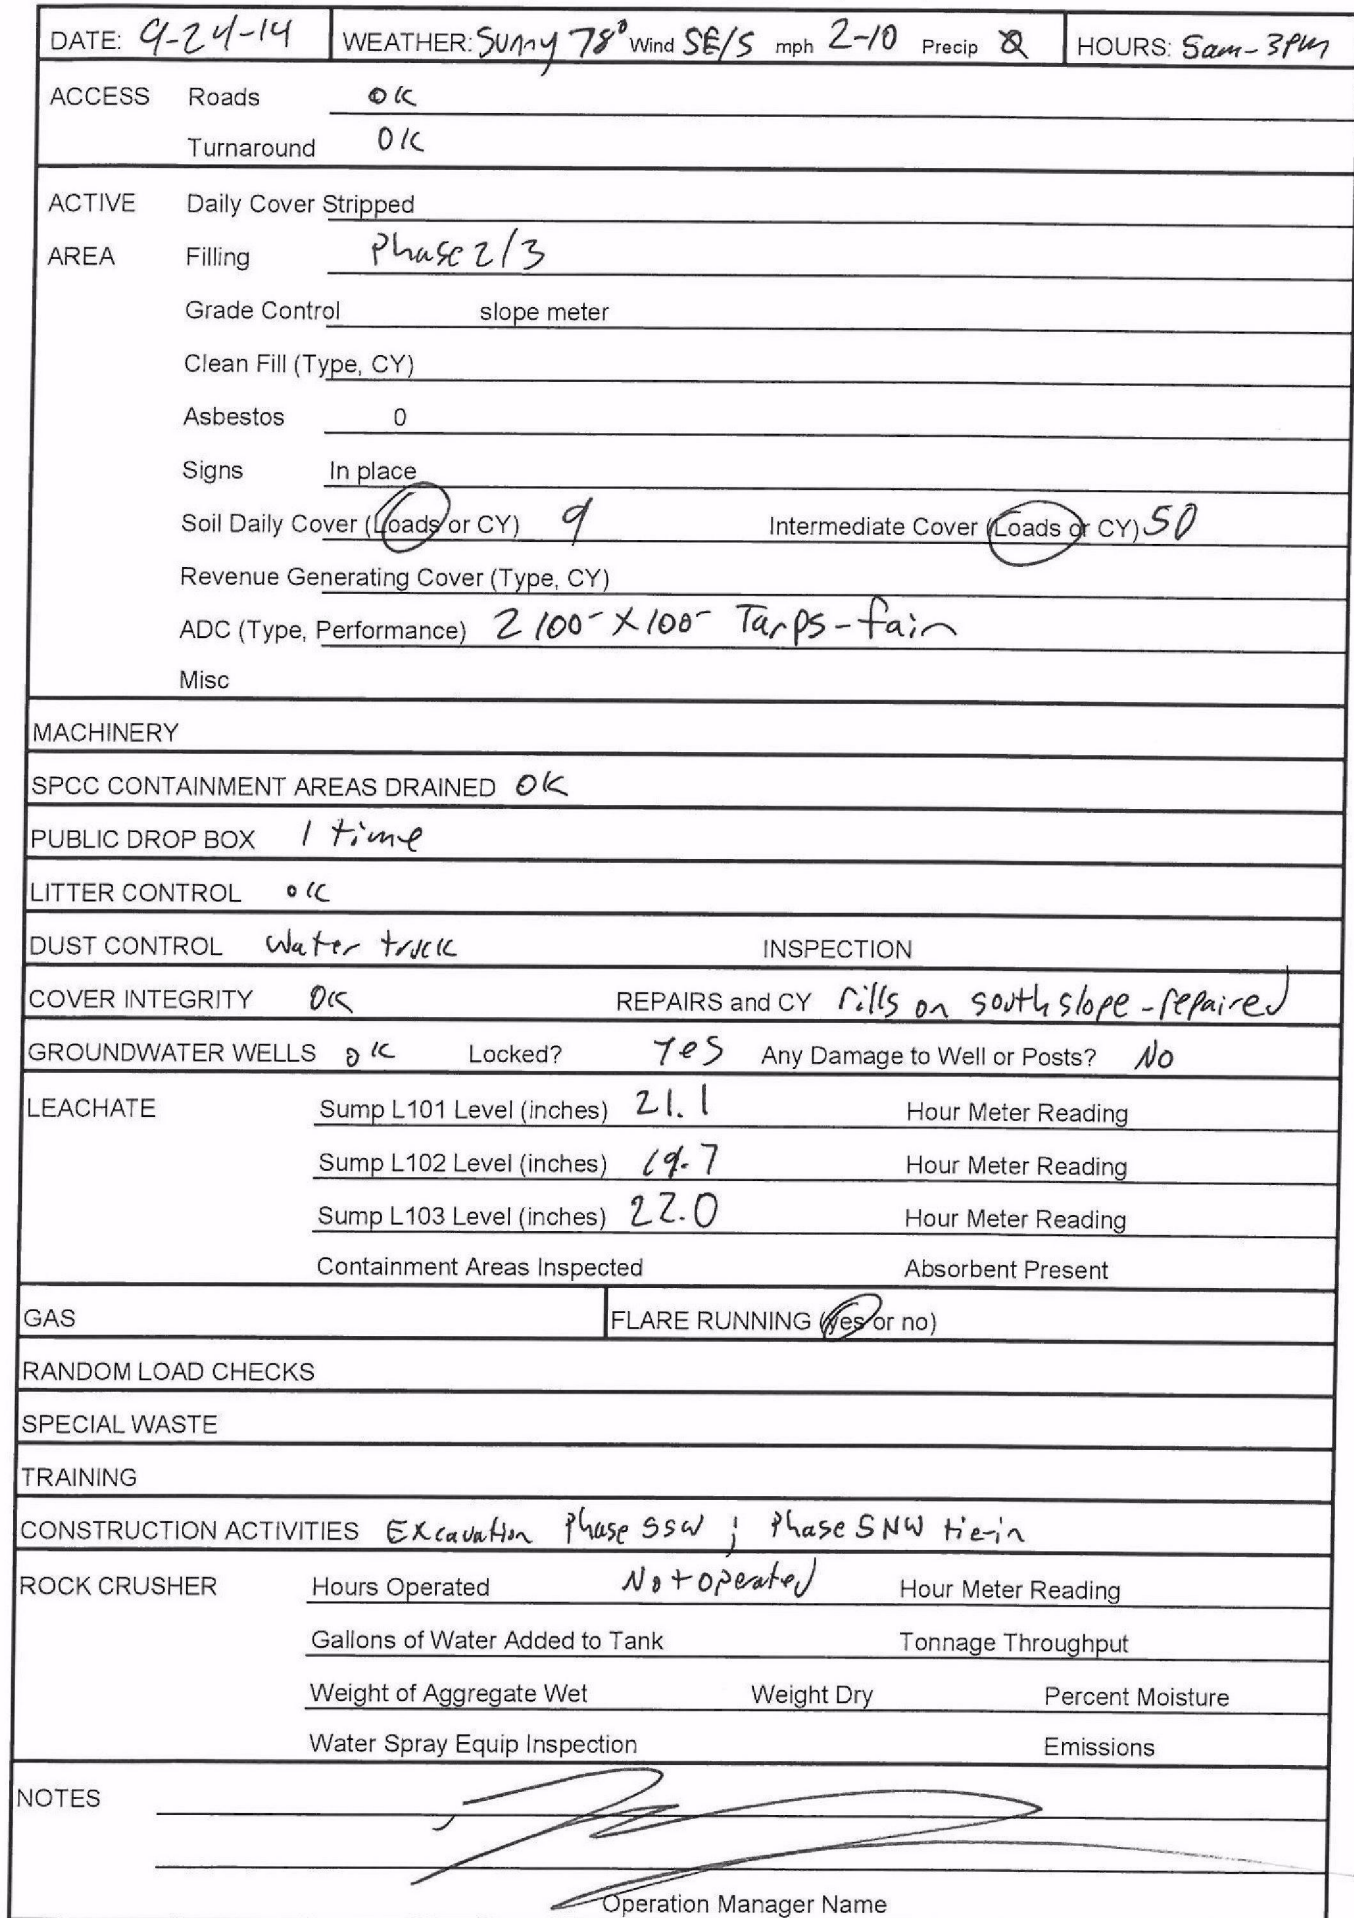 DATE: 9-24-14 WEATHER: Sunny 78° Wind SE/S mph 2-10 Precip 0 HOURS: 5am-3PM
ACCESS Roads OK
Turnaround OK
ACTIVE Daily Cover Stripped
AREA Filling Phase 2/3
Grade Control slope meter
Clean Fill (Type, CY)
Asbestos 0
Signs In place
Soil Daily Cover (Loads or CY) 9 Intermediate Cover (Loads or CY) 50
Revenue Generating Cover (Type, CY)
ADC (Type, Performance) 2 100- X 100- Tarps - fair
Misc
MACHINERY
SPCC CONTAINMENT AREAS DRAINED OK
PUBLIC DROP BOX 1 time
LITTER CONTROL OK
DUST CONTROL Water truck INSPECTION
COVER INTEGRITY OK REPAIRS and CY rills on south slope - repaired
GROUNDWATER WELLS OK Locked? Yes Any Damage to Well or Posts? No
LEACHATE Sump L101 Level (inches) 21.1 Hour Meter Reading
Sump L102 Level (inches) 19.7 Hour Meter Reading
Sump L103 Level (inches) 22.0 Hour Meter Reading
Containment Areas Inspected Absorbent Present
GAS FLARE RUNNING (yes or no)
RANDOM LOAD CHECKS
SPECIAL WASTE
TRAINING
CONSTRUCTION ACTIVITIES Excavation Phase 5SW ; Phase 5NW tie-in
ROCK CRUSHER Hours Operated Not operated Hour Meter Reading
Gallons of Water Added to Tank Tonnage Throughput
Weight of Aggregate Wet Weight Dry Percent Moisture
Water Spray Equip Inspection Emissions
NOTES
Operation Manager Name